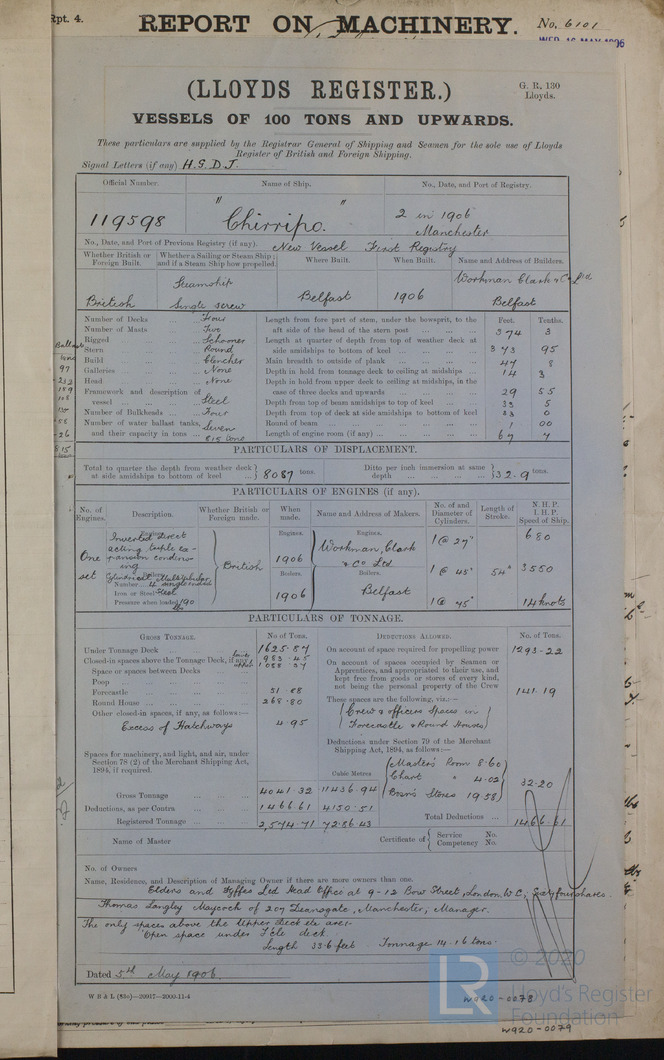 Rpt. 4.
REPORT ON MACHINERY.
No. 6101
WED. 16 MAY 1906
(LLOYDS REGISTER.)
G. R. 130
Lloyds.
VESSELS OF 100 TONS AND UPWARDS.
These particulars are supplied by the Registrar General of Shipping and Seamen for the sole use of Lloyds
Register of British and Foreign Shipping.
Signal Letters (if any) H.G.D.J.
Official Number. Name of Ship. No., Date, and Port of Registry.
119598 "Chirripo." 2 in 1906
Manchester
No., Date, and Port of Previous Registry (if any). New Vessel First Registry
Whether British or Foreign Built. Whether a Sailing or Steam Ship; and if a Steam Ship how propelled. Where Built. When Built. Name and Address of Builders.
British Steamship Single screw Belfast 1906 Workman Clark & Co Ltd Belfast
Number of Decks ... Four
Number of Masts ... Two
Rigged ... Schooner
Stern ... Round
Build ... Clencher
Galleries ... None
Head ... None
Framework and description of vessel ... Steel
Number of Bulkheads ... Four
Number of water ballast tanks, and their capacity in tons ... Seven 815 tons
Feet. Tenths.
Length from fore part of stem, under the bowsprit, to the aft side of the head of the stern post ... 374 3
Length at quarter of depth from top of weather deck at side amidships to bottom of keel ... 373 95
Main breadth to outside of plank ... 47 8
Depth in hold from tonnage deck to ceiling at midships ... 14 3
Depth in hold from upper deck to ceiling at midships, in the case of three decks and upwards ... 29 55
Depth from top of beam amidships to top of keel ... 33 5
Depth from top of deck at side amidships to bottom of keel 33 0
Round of beam ... 1 00
Length of engine room (if any) ... 67 7
PARTICULARS OF DISPLACEMENT.
Total to quarter the depth from weather deck at side amidships to bottom of keel ... 8087 tons.
Ditto per inch immersion at same depth ... 32.9 tons.
PARTICULARS OF ENGINES (if any).
No. of Engines. Description. Whether British or Foreign made. When made. Name and Address of Makers. No. of and Diameter of Cylinders. Length of Stroke. N. H. P. I. H. P. Speed of Ship.
One set
Engines.
Inverted Direct acting triple expansion condensing
Boilers.
Cylindrical Multitubular
Number 4 single ended
Iron or Steel Steel
Pressure when loaded 190 lbs
British
Engines. 1906
Boilers. 1906
Engines. Workman, Clark & Co Ltd
Boilers. Belfast
1 @ 27"
1 @ 45"
1 @ 75"
54"
680
3550
14 knots
PARTICULARS OF TONNAGE.
GROSS TONNAGE. No of Tons.
Under Tonnage Deck ... 1625.87
Closed-in spaces above the Tonnage Deck, if any
Space or spaces between Decks
Poop ...
Forecastle ... 51.88
Round House ... 268.80
Other closed-in spaces, if any, as follows:—
Excess of Hatchways 4.95
Spaces for machinery, and light, and air, under Section 78 (2) of the Merchant Shipping Act, 1894, if required.
Cubic Metres
Gross Tonnage ... 4041.32 11436.94
Deductions, as per Contra ... 1466.61 4150.51
Registered Tonnage ... 2,574.71 7286.43
DEDUCTIONS ALLOWED. No. of Tons.
On account of space required for propelling power 1293.22
On account of spaces occupied by Seamen or Apprentices, and appropriated to their use, and kept free from goods or stores of every kind, not being the personal property of the Crew 141.19
These spaces are the following, viz.:—
Crew & officers Spaces in Forecastle & Round Houses
Deductions under Section 79 of the Merchant Shipping Act, 1894, as follows:—
Master's Room 8.60
Chart " 4.02
Bosn's Stores 19.58
32.20
Total Deductions ... 1466.61
Name of Master Certificate of Service No.
Competency No.
No. of Owners
Name, Residence, and Description of Managing Owner if there are more owners than one.
Elders and Fyffes Ltd Head Office at 9-12 Bow Street, London, W.C; Sixty four shares.
Thomas Langley Maycock of 207 Deansgate, Manchester, Manager.
The only spaces above the Upper Deck etc are:-
Open space under F'cle deck.
Length 33.6 feet Tonnage 14.16 tons.
Dated 5th May 1906.
LR
© 2020
Lloyd's Register
Foundation
W920-0078
W920-0079